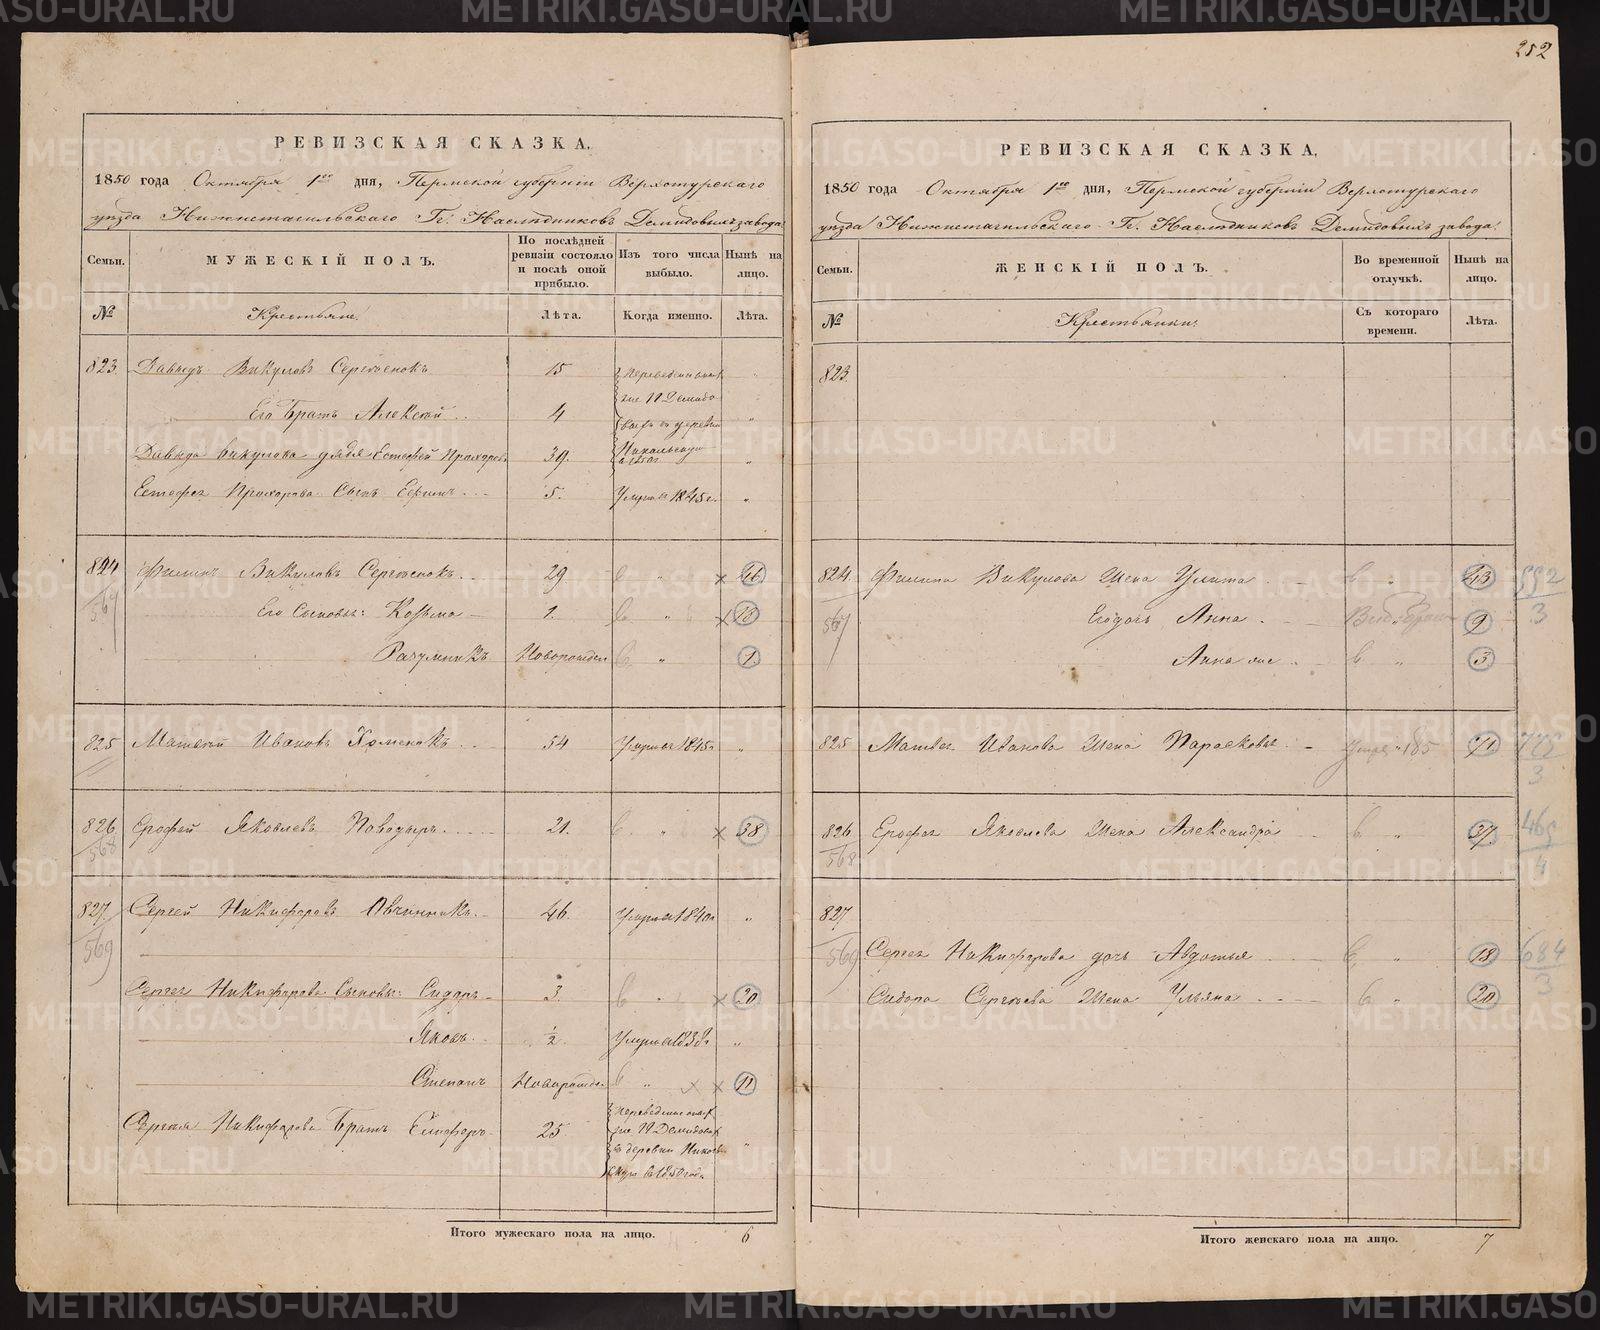 252
РЕВИЗСКАЯ СКАЗКА.
1850 года Октября 1го дня, Пермской губерніи Верхотурскаго
уѣзда Нижнетагильскаго Гг. Наслѣдниковъ Демидовыхъ завода
Семьи.
МУЖЕСКІЙ ПОЛЪ.
По послѣдней ревизіи состояло и послѣ оной прибыло.
Изъ того числа выбыло.
Нынѣ на лицо.
№
Крестьяне.
Лѣта.
Когда именно.
Лѣта.
823. Давыдъ Викуловъ Сергѣенокъ 15 Переведены
гг. Демидо
Его Братъ Алексѣй 4 выхъ въ деревню
Давыда Викулова дядя Естефей Прохоровъ 39. Никольскую
Естефея Прохорова Сынъ 5. Умре 1845 г. "
824 Филипъ Викуловъ Сергѣенокъ 29 в " × 46
567 Его Сыновья: Козьма 1. в " × 18
Разумникъ Новорожден в " 1
825 Матвѣй Ивановъ 54 Умре 1845 "
826 Ерофей Яковлевъ Поводырь 21. в " × 38
568
827. Сергей Никифоровъ Овчинникъ 46. Умре 1840 "
569
Сергея Никифорова Сыновья: Сидоръ 3. в " × 20
Яковъ ½ Умре 1838 "
Степанъ Новорожден в " × × 11
Сергея Никифорова Братъ 25 Переведены
гг. Демидовых
въ деревню Николь
скую в 1850 году
Итого мужескаго пола на лицо. 6
РЕВИЗСКАЯ СКАЗКА.
1850 года Октября 1го дня, Пермской губерніи Верхотурскаго
уѣзда Нижнетагильскаго Гг. Наслѣдниковъ Демидовыхъ завода.
Семьи.
ЖЕНСКІЙ ПОЛЪ.
Во временной отлучкѣ.
Нынѣ на лицо.
№
Крестьянки.
Съ котораго времени.
Лѣта.
823.
824. Филипа Викулова Жена Улита в " 43 592
567 Его дочь Анна 9 3
Анна же в " 3
825 Матвея Иванова Жена Парасковья 185 71 775
3
826 Ерофея Яковлева Жена Александра в " 37 465
568 4
827
569 Сергея Никифорова дочь Авдотья в " 18 684
Сидора Сергѣева Жена Ульяна в " 20 3
Итого женскаго пола на лицо. 7
METRIKI.GASO-URAL.RU